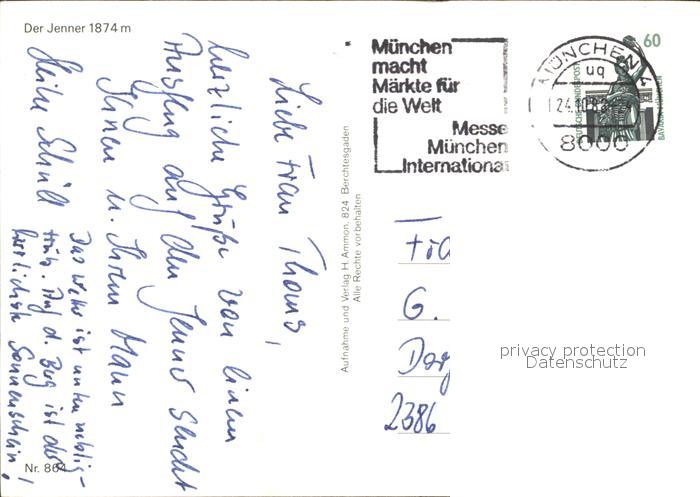 Der Jenner 1874 m
Liebe Frau Thoms,
herzliche Grüße von einem
Ausflug auf den Jenner sendet
Ihnen u. Ihrem Mann
Heike Schüll
Das Wetter ist unten neblig-
trüb. Auf d. Berg ist der
herrlichste Sonnenschein!
Nr. 864
Aufnahme und Verlag H. Ammon, 824 Berchtesgaden
Alle Rechte vorbehalten
München
macht
Märkte für
die Welt
Messe
München
International
MÜNCHEN
uq
24.10.8
8000
60
DEUTSCHE BUNDESPOST
BAVARIA MÜNCHEN
Fra
G.
Dor
2386
privacy protection
Datenschutz